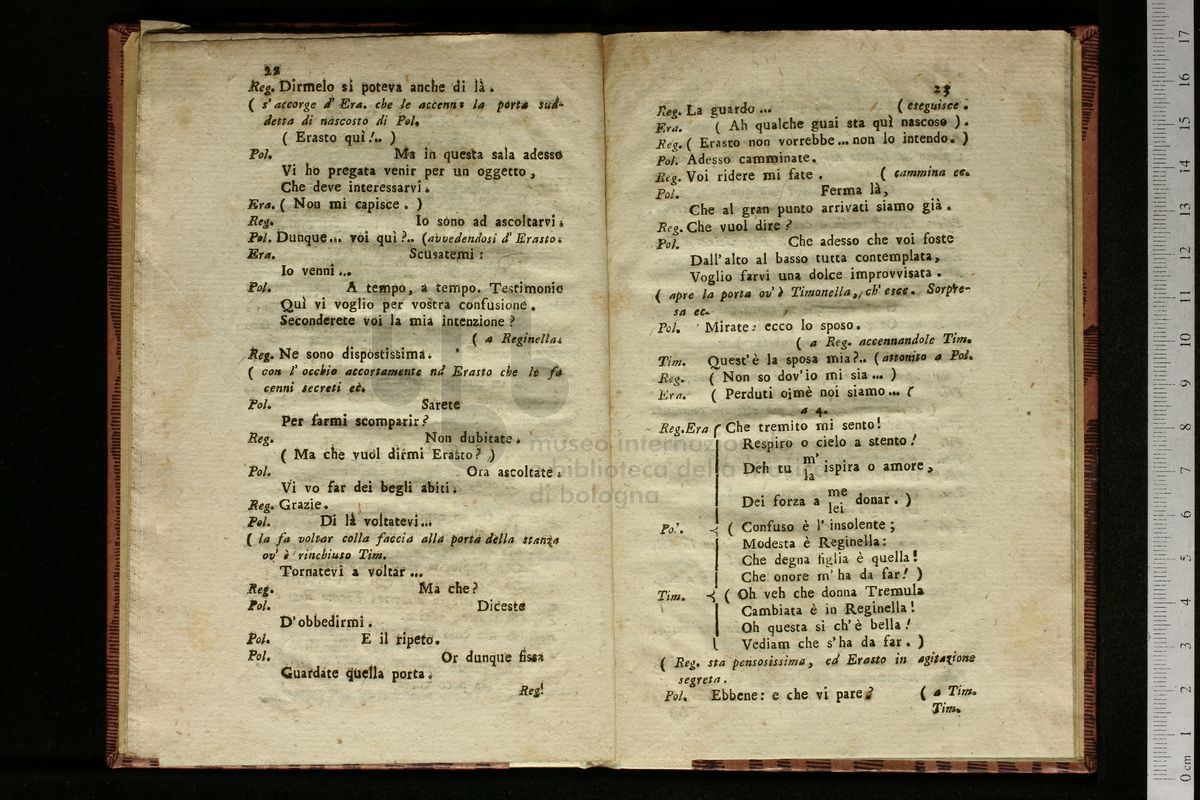 22
Reg. Dirmelo si poteva anche di là.
( s'accorge d' Era. che le accenna la porta sud-
detta di nascosto di Pol.
( Erasto quì!.. )
Pol. Ma in questa sala adesso
Vi ho pregata venir per un oggetto,
Che deve interessarvi.
Era. ( Non mi capisce. )
Reg. Io sono ad ascoltarvi.
Pol. Dunque... voi quì?.. (avvedendosi d' Erasto.
Era. Scusatemi:
Io venni...
Pol. A tempo, a tempo. Testimonio
Quì vi voglio per vostra confusione.
Seconderete voi la mia intenzione?
( a Reginella.
Reg. Ne sono dispostissima.
( con l' occhio accortamente ad Erasto che le fa
cenni secreti ec.
Pol. Sarete
Per farmi scomparir?
Reg. Non dubitate.
( Ma che vuol dirmi Erasto? )
Pol. Ora ascoltate.
Vi vo far dei begli abiti.
Reg. Grazie.
Pol. Di là voltatevi...
( la fa voltar colla faccia alla porta della stanza
ov' è rinchiuso Tim.
Tornatevi a voltar...
Reg. Ma che?
Pol. Diceste
D'obbedirmi.
Pol. E il ripeto.
Pol. Or dunque fissa
Guardate quella porta.
Reg!
23
Reg. La guardo... ( eseguisce.
Era. ( Ah qualche guai sta quì nascoso ).
Reg. ( Erasto non vorrebbe... non lo intendo. )
Pol. Adesso camminate.
Reg. Voi ridere mi fate. ( cammina ec.
Pol. Ferma là,
Che al gran punto arrivati siamo già.
Reg. Che vuol dire?
Pol. Che adesso che voi foste
Dall'alto al basso tutta contemplata,
Voglio farvi una dolce improvvisata.
( apre la porta ov' è Timonella, ch' esce. Sorpre-
sa ec.
Pol. Mirate: ecco lo sposo.
( a Reg. accennandole Tim.
Tim. Quest'è la sposa mia?.. (attonito a Pol.
Reg. ( Non so dov'io mi sia... )
Era. ( Perduti oimè noi siamo... (
a 4.
Reg. Era ( Che tremito mi sento!
Respiro o cielo a stento!
Deh tu m' / la ispira o amore,
Dei forza a me / lei donar. )
Pol. ( Confuso è l' insolente;
Modesta è Reginella:
Che degna figlia è quella!
Che onore m' ha da far! )
Tim. ( Oh veh che donna Tremula
Cambiata è in Reginella!
Oh questa sì ch'è bella!
Vediam che s'ha da far. )
( Reg. sta pensosissima, ed Erasto in agitazione
segreta.
Pol. Ebbene: e che vi pare? ( a Tim.
Tim.
museo internazionale
e biblioteca della musica
di bologna
0 cm 1 2 3 4 5 6 7 8 9 10 11 12 13 14 15 16 17